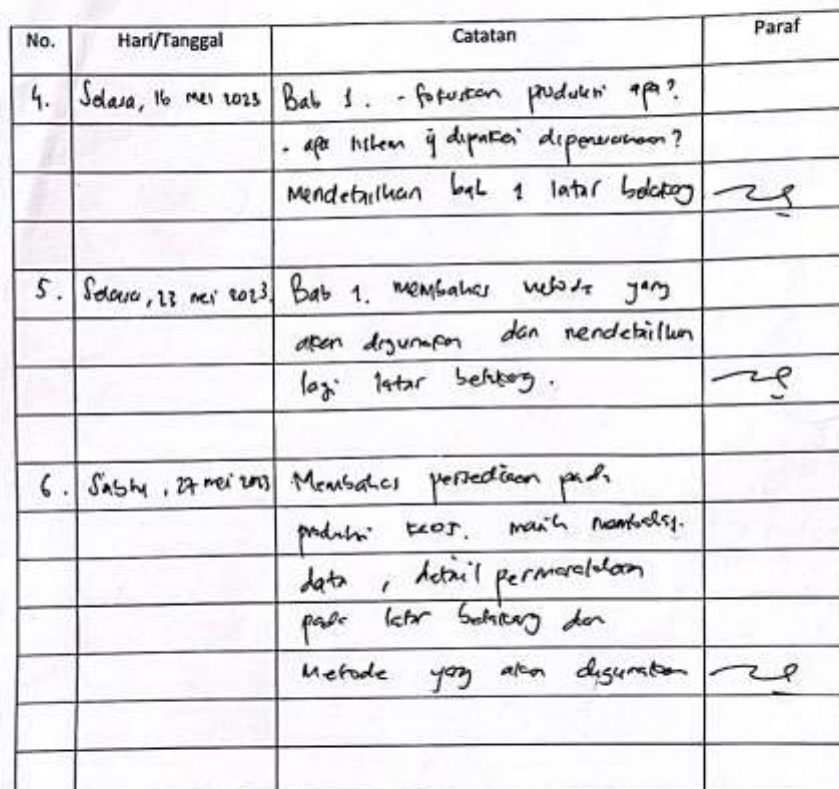 No. Hari/Tanggal Catatan Paraf
4. Selasa, 16 mei 2023 Bab 1. - fokuskan produksi apa?
- apa sistem yg dipakai diperusahaan?
Mendetailkan bab 1 latar belakang
5. Selasa, 23 mei 2023. Bab 1. membahas metode yang
akan digunakan dan mendetailkan
lagi latar belakang.
6. Sabtu, 27 mei 2023 Membahas persediaan pada
produksi kaos. masih membahas.
data, detail permasalahan
pada latar belakang dan
Metode yang akan digunakan